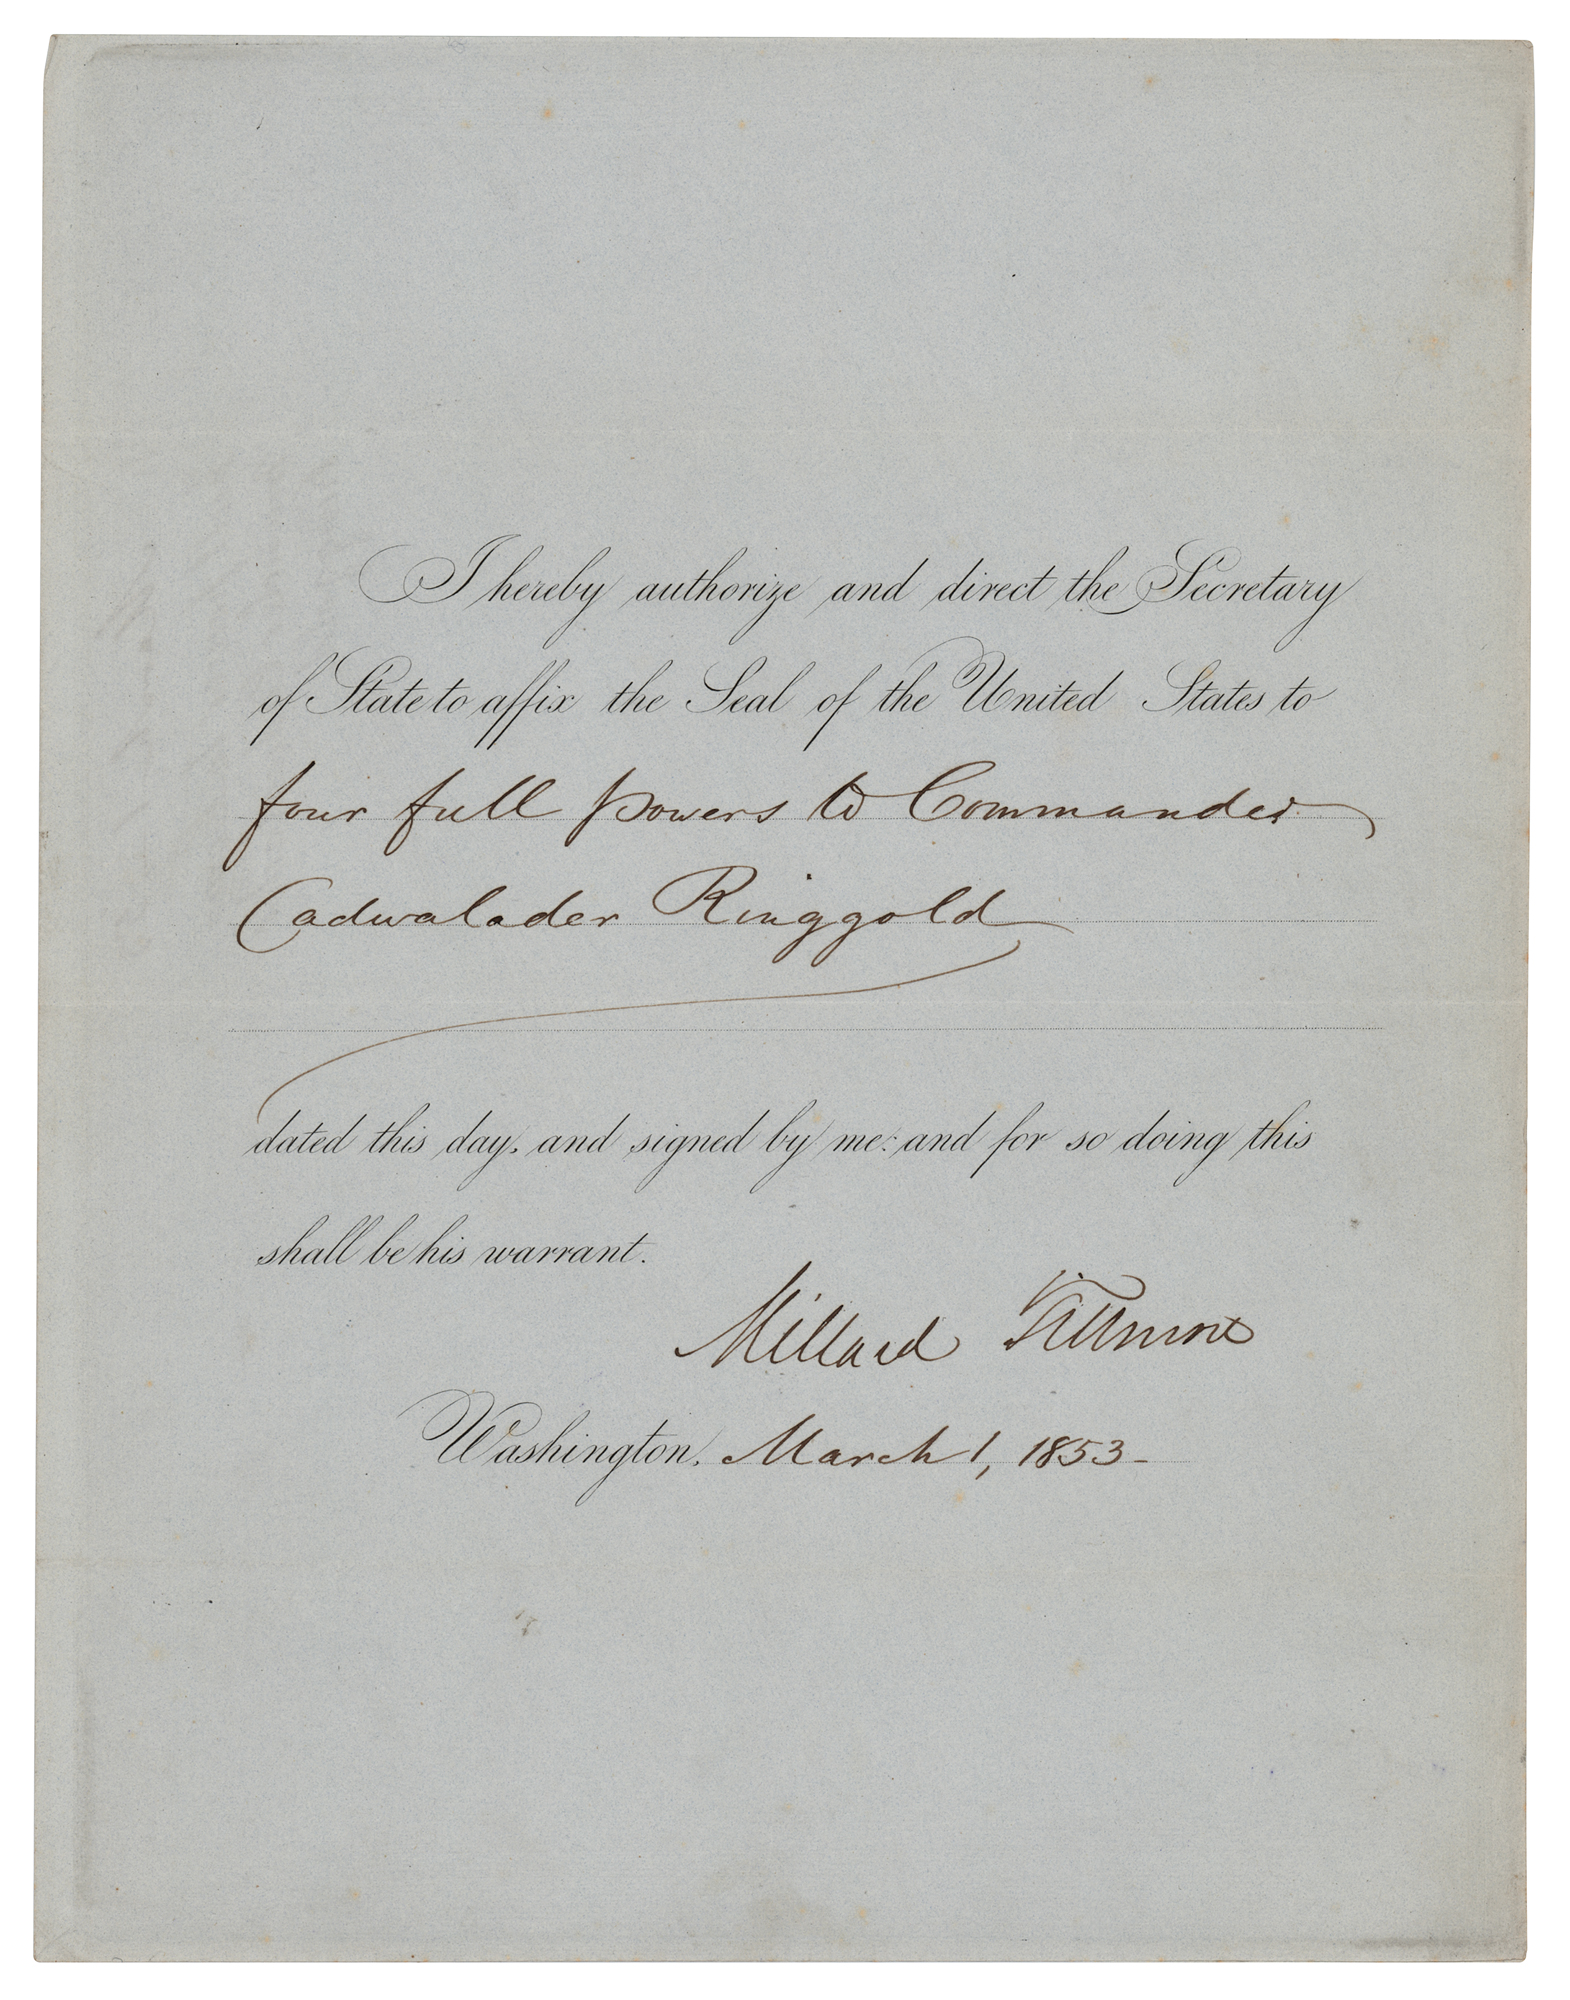 I hereby authorize and direct the Secretary
of State to affix the Seal of the United States to
four full powers to Commander
Cadwalader Ringgold
dated this day, and signed by me: and for so doing this
shall be his warrant.
Millard Fillmore
Washington, March 1, 1853-